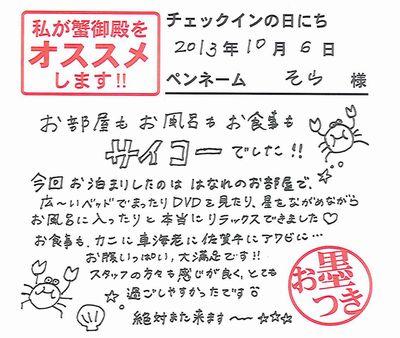 私が蟹御殿を
オススメ
します!!
チェックインの日にち
2013年10月6日
ペンネーム そら 様
お部屋もお風呂もお食事も
サイコーでした!!
今回お泊まりしたのは はなれのお部屋で、
広〜いベッドでまったりDVDを見たり、星をながめながら
お風呂に入ったりと本当にリラックスできました♡
お食事も、カニに車海老に佐賀牛にアワビに…
お腹いっぱい、大満足です!!
スタッフの方々も感じが良く、とても
過ごしやすかったです
絶対また来ます〜☆☆☆
お墨つき